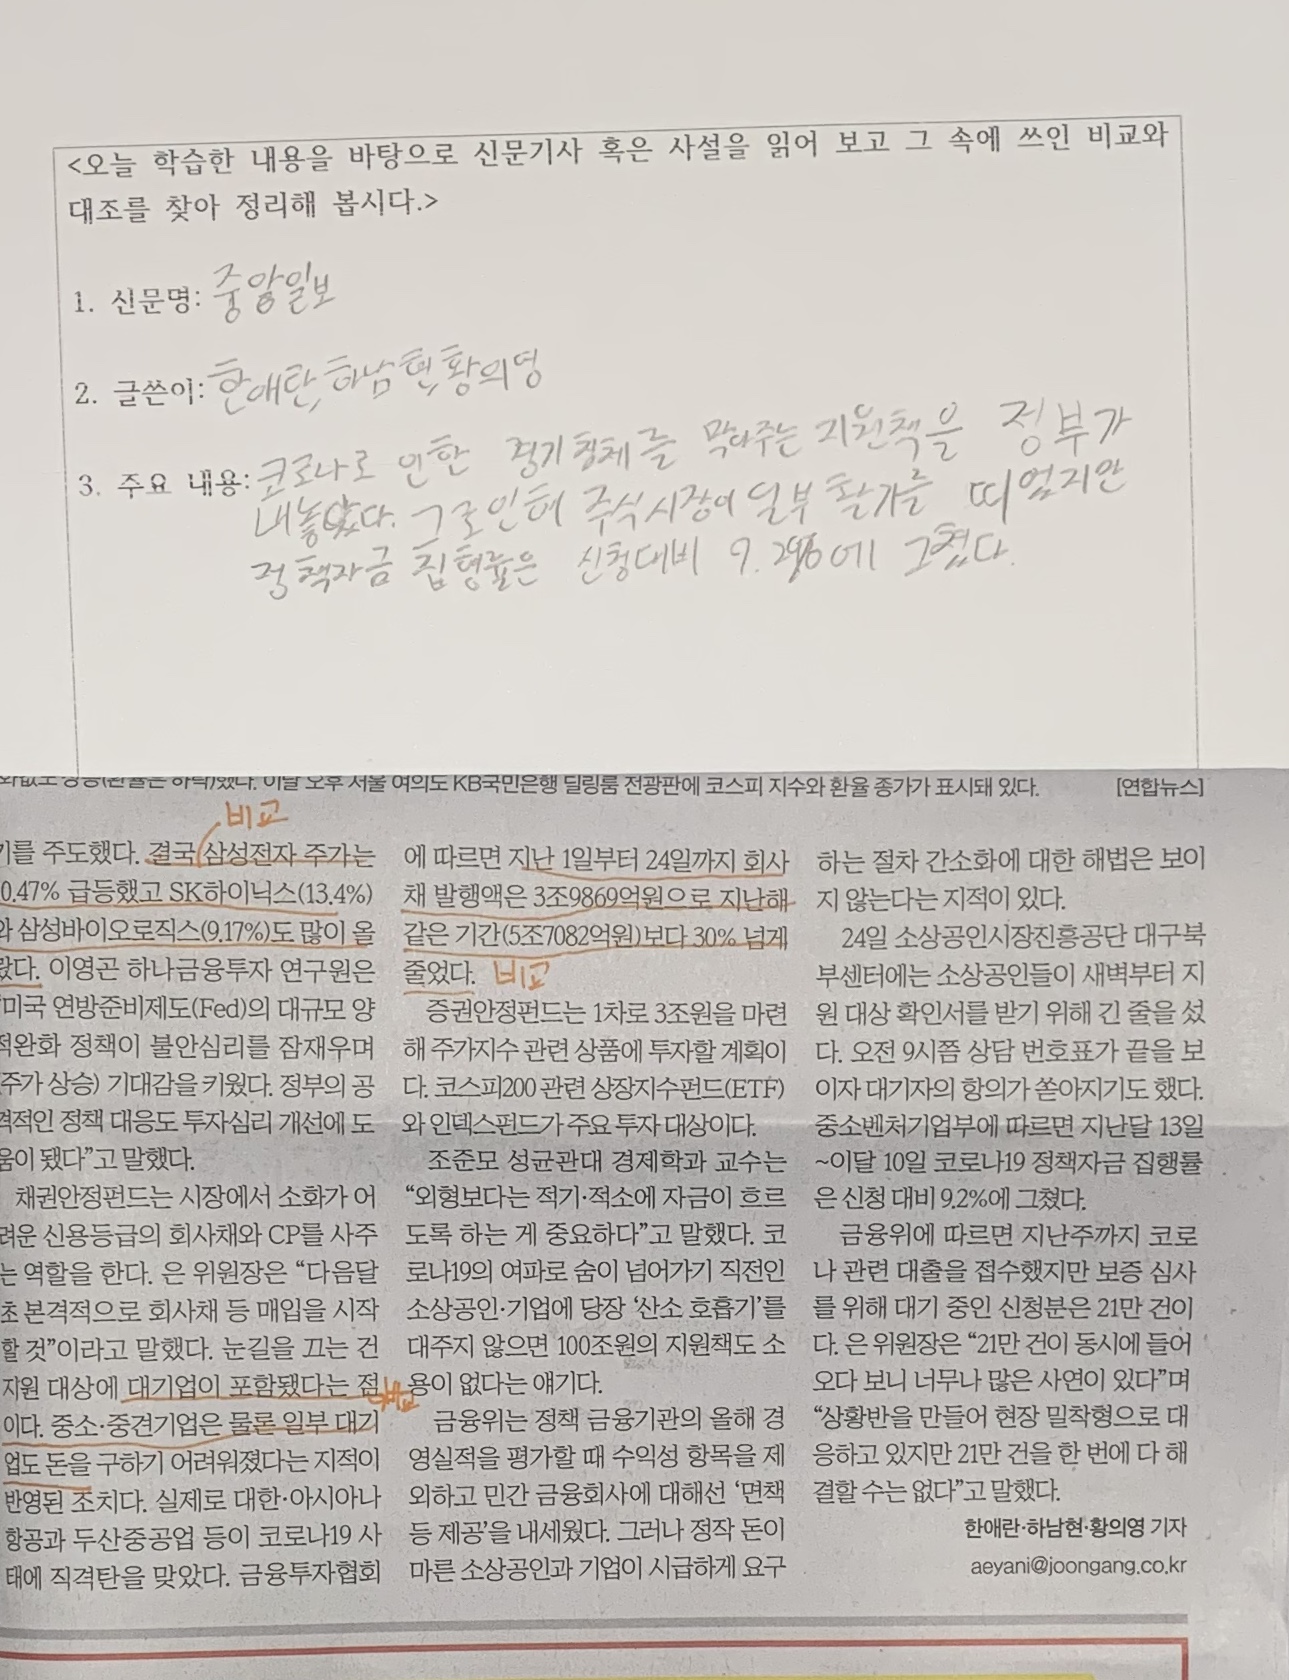 <오늘 학습한 내용을 바탕으로 신문기사 혹은 사설을 읽어 보고 그 속에 쓰인 비교와
대조를 찾아 정리해 봅시다.>
1. 신문명: 중앙일보
2. 글쓴이: 한애란, 하남현, 황의영
3. 주요 내용: 코로나로 인한 경기침체를 막아주는 지원책을 정부가
내놓았다. 그로인해 주식시장이 일부 활기를 띠었지만
정책자금 집행률은 신청대비 9.2%에 그쳤다.
했다. 이날 오후 서울 여의도 KB국민은행 딜링룸 전광판에 코스피 지수와 환율 종가가 표시돼 있다. [연합뉴스]
비교
기를 주도했다. 결국 삼성전자 주가는
0.47% 급등했고 SK하이닉스(13.4%)
와 삼성바이오로직스(9.17%)도 많이 올
랐다. 이영곤 하나금융투자 연구원은
“미국 연방준비제도(Fed)의 대규모 양
적완화 정책이 불안심리를 잠재우며
(주가 상승) 기대감을 키웠다. 정부의 공
격적인 정책 대응도 투자심리 개선에 도
움이 됐다”고 말했다.
채권안정펀드는 시장에서 소화가 어
려운 신용등급의 회사채와 CP를 사주
는 역할을 한다. 은 위원장은 “다음달
초 본격적으로 회사채 등 매입을 시작
할 것”이라고 말했다. 눈길을 끄는 건
지원 대상에 대기업이 포함됐다는 점
비교
이다. 중소·중견기업은 물론 일부 대기
업도 돈을 구하기 어려워졌다는 지적이
반영된 조치다. 실제로 대한·아시아나
항공과 두산중공업 등이 코로나19 사
태에 직격탄을 맞았다. 금융투자협회
에 따르면 지난 1일부터 24일까지 회사
채 발행액은 3조9869억원으로 지난해
같은 기간(5조7082억원)보다 30% 넘게
줄었다. 비교
증권안정펀드는 1차로 3조원을 마련
해 주가지수 관련 상품에 투자할 계획이
다. 코스피200 관련 상장지수펀드(ETF)
와 인덱스펀드가 주요 투자 대상이다.
조준모 성균관대 경제학과 교수는
“외형보다는 적기·적소에 자금이 흐르
도록 하는 게 중요하다”고 말했다. 코
로나19의 여파로 숨이 넘어가기 직전인
소상공인·기업에 당장 ‘산소 호흡기’를
대주지 않으면 100조원의 지원책도 소
용이 없다는 얘기다.
금융위는 정책 금융기관의 올해 경
영실적을 평가할 때 수익성 항목을 제
외하고 민간 금융회사에 대해선 ‘면책
등 제공’을 내세웠다. 그러나 정작 돈이
마른 소상공인과 기업이 시급하게 요구
하는 절차 간소화에 대한 해법은 보이
지 않는다는 지적이 있다.
24일 소상공인시장진흥공단 대구북
부센터에는 소상공인들이 새벽부터 지
원 대상 확인서를 받기 위해 긴 줄을 섰
다. 오전 9시쯤 상담 번호표가 끝을 보
이자 대기자의 항의가 쏟아지기도 했다.
중소벤처기업부에 따르면 지난달 13일
~이달 10일 코로나19 정책자금 집행률
은 신청 대비 9.2%에 그쳤다.
금융위에 따르면 지난주까지 코로
나 관련 대출을 접수했지만 보증 심사
를 위해 대기 중인 신청분은 21만 건이
다. 은 위원장은 “21만 건이 동시에 들어
오다 보니 너무나 많은 사연이 있다”며
“상황반을 만들어 현장 밀착형으로 대
응하고 있지만 21만 건을 한 번에 다 해
결할 수는 없다”고 말했다.
한애란·하남현·황의영 기자
aeyani@joongang.co.kr